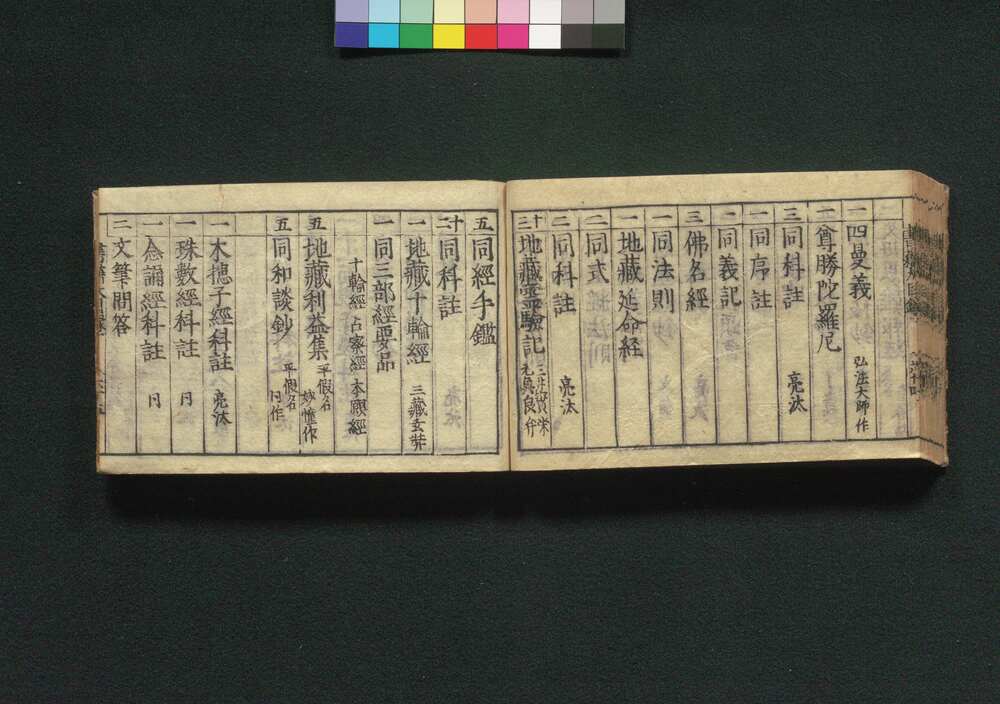 一 四曼義 弘法大師作
二 尊勝陀羅尼
三 同科註 亮汰
一 同序註
二 同義記
三 佛名經
一 同法則
一 地藏延命経
二 同式
二 同科註 亮汰
十三 地藏靈驗記
五 同經手鑑
十二 同科註
一 地藏十輪經 三藏玄奘
一 同三部經要品
十輪經 占察經 本願經
五 地藏利益集 平假名 妙幢作
五 同和談鈔 平假名 同作
一 木槵子經科註 亮汰
一 珠数經科註 同
一 念誦經科註 同
二 文筆問答